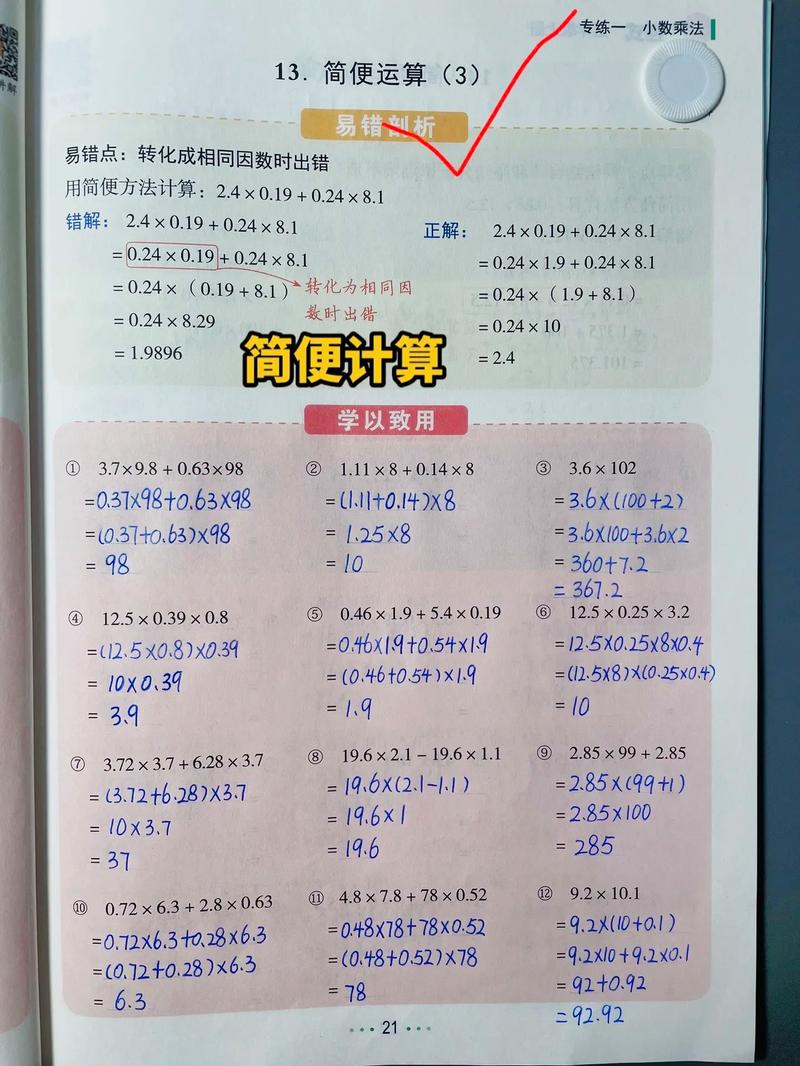 专练一 小数乘法
讲解
13. 简便运算（3）
易错剖析
易错点：转化成相同因数时出错
用简便方法计算：2.4×0.19+0.24×8.1
错解： 2.4×0.19+0.24×8.1
=0.24×0.19+0.24×8.1
=0.24×（0.19+8.1）
=0.24×8.29
=1.9896
转化为相同因
数时出错
正解： 2.4×0.19+0.24×8.1
=0.24×1.9+0.24×8.1
=0.24×（1.9+8.1）
=0.24×10
=2.4
简便计算
学以致用
① 3.7×9.8+0.63×98
=0.37×98+0.63×98
=(0.37+0.63)×98
=98
② 1.11×8+0.14×8
=(1.11+0.14)×8
=1.25×8
=10
③ 3.6×102
=3.6×(100+2)
=3.6×100+3.6×2
=360+7.2
=367.2
④ 12.5×0.39×0.8
=(12.5×0.8)×0.39
=10×0.39
=3.9
⑤ 0.46×1.9+5.4×0.19
=0.46×1.9+0.54×1.9
=(0.46+0.54)×1.9
=1.9
⑥ 12.5×0.25×3.2
=12.5×0.25×8×0.4
=(12.5×8)×(0.25×0.4)
=10
⑦ 3.72×3.7+6.28×3.7
=(3.72+6.28)×3.7
=10×3.7
=37
⑧ 19.6×2.1－19.6×1.1
=19.6×(2.1-1.1)
=19.6×1
=19.6
⑨ 2.85×99+2.85
=2.85×(99+1)
=2.85×100
=285
⑩ 0.72×6.3+2.8×0.63
=0.72×6.3+0.28×6.3
=(0.72+0.28)×6.3
=6.3
⑪ 4.8×7.8+78×0.52
=0.48×78+78×0.52
=(0.48+0.52)×78
=78
⑫ 9.2×10.1
=9.2×(10+0.1)
=9.2×10+9.2×0.1
=92+0.92
=92.92
21